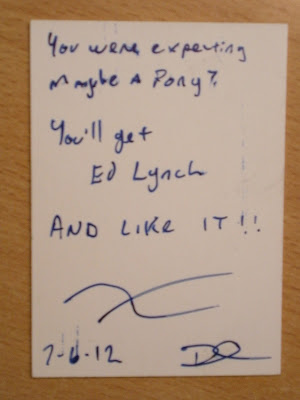 You were expecting
Maybe A Pony?
You'll get
Ed Lynch
AND LIKE IT!!
7-6-12